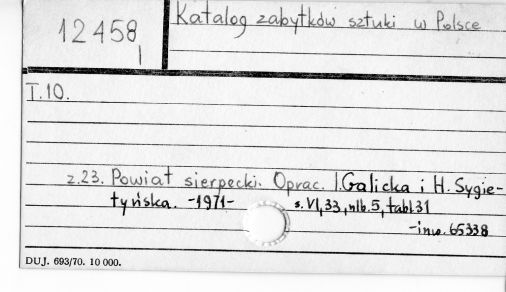 12458
I
Katalog zabytków sztuki w Polsce
T.10.
z.23. Powiat sierpecki. Oprac. I. Galicka i H. Sygie-
tyńska. -1971- s. VI, 33, nlb. 5, tabl. 31
-inw. 65338
DUJ. 693/70. 10 000.